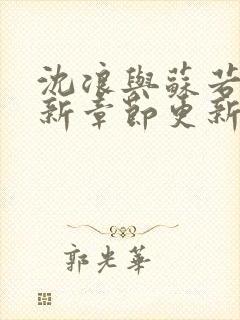 沈浪與蘇若
新章節更新
郭光華